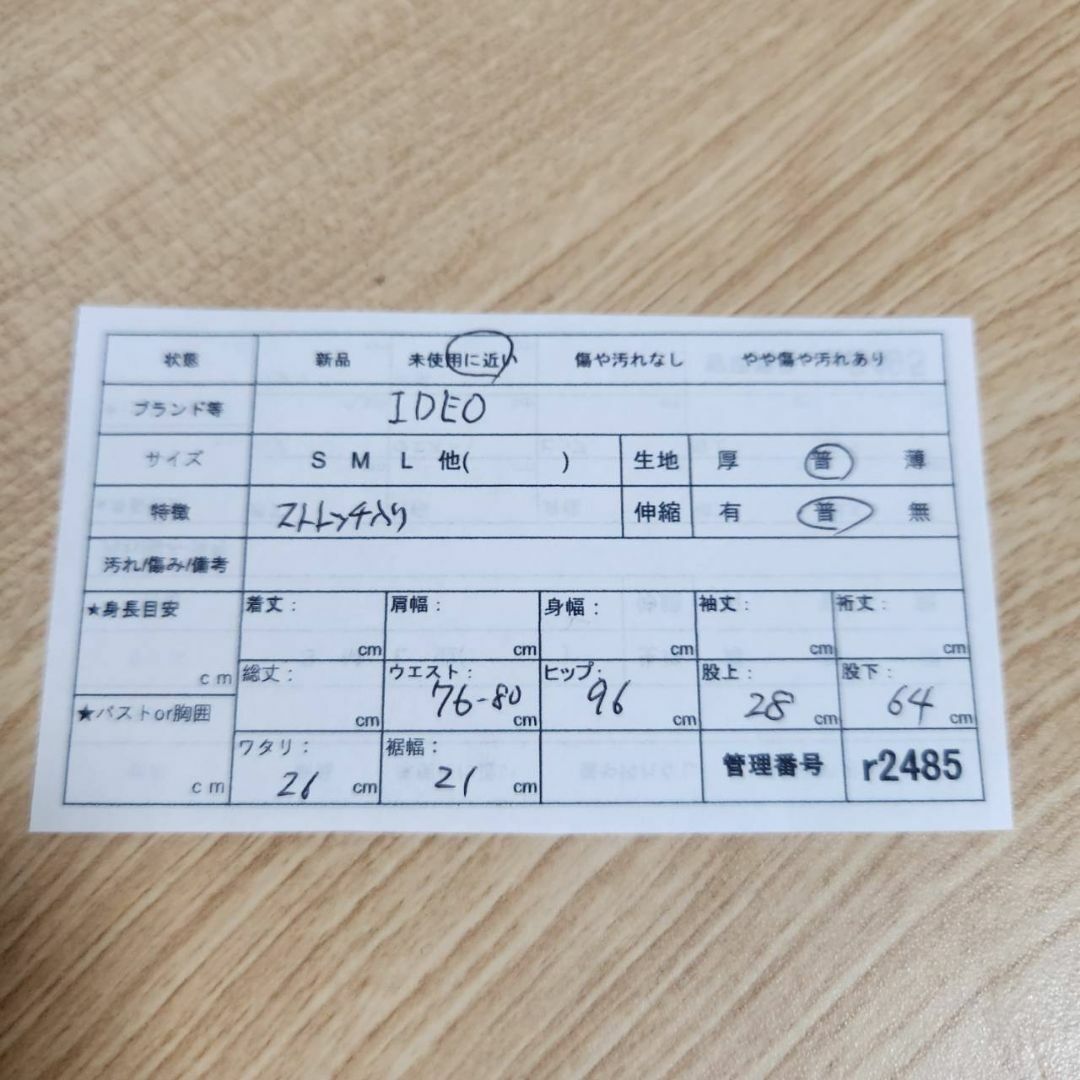 状態 新品 未使用に近い 傷や汚れなし やや傷や汚れあり
ブランド等 IDEO
サイズ S M L 他( ) 生地 厚 普 薄
特徴 ストレッチ入り 伸縮 有 普 無
汚れ/傷み/備考
★身長目安 cm
着丈: cm 肩幅: cm 身幅: cm 袖丈: cm 裄丈: cm
総丈: cm ウエスト: 76-80 cm ヒップ: 96 cm 股上: 28 cm 股下: 64 cm
★バストor胸囲 cm
ワタリ: 26 cm 裾幅: 21 cm 管理番号 r2485